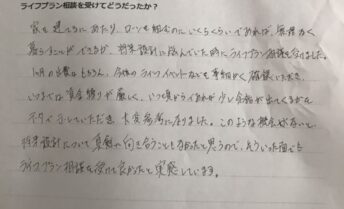 ライフプラン相談を受けてどうだったか？
家を建てるにあたり、ローンを組むのにいくらくらいであれば、無理なく
暮らすことができるか、将来設計に悩んでいた時にライフプラン相談を受けました。
1ヶ月の支出はもちろん、今後のライフイベントなども事細かく確認いただき、
いつまでは資金繰りが厳しく、いつ頃からであれば少し余裕が出てくるかを
示していただき、大変参考になりました。このような機会がないと、
将来設計について真剣に向き合うこともなかったと思うので、そういった面でも
ライフプラン相談を受けて良かったと実感しています。